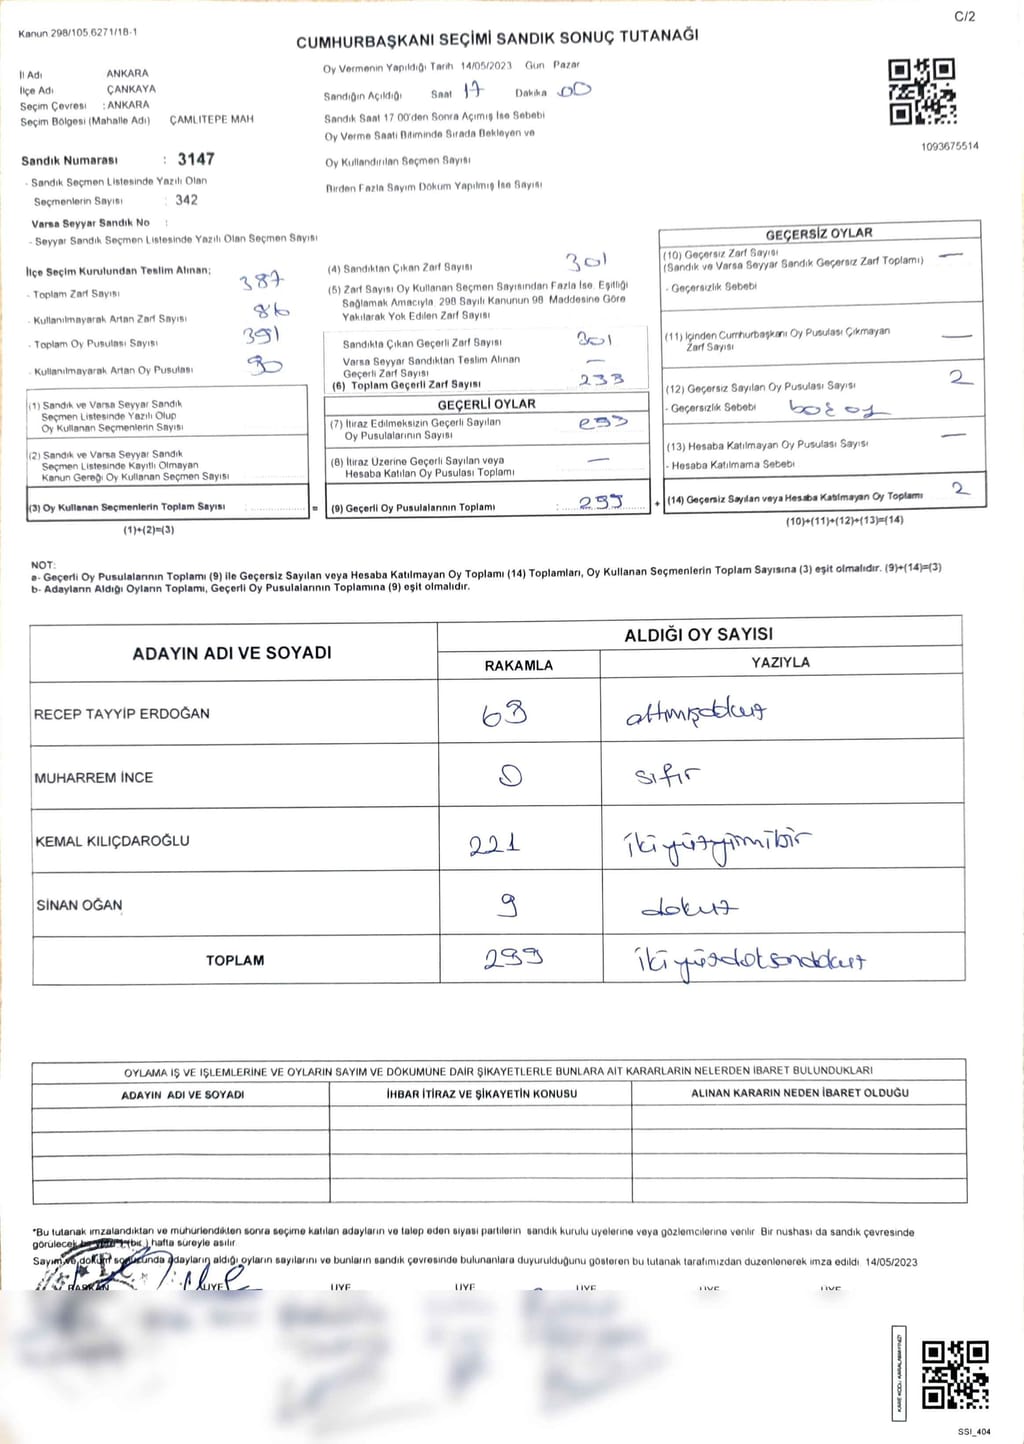 C/2
Kanun 298/105.6271/18-1
CUMHURBAŞKANI SEÇİMİ SANDIK SONUÇ TUTANAĞI
İl Adı ANKARA
İlçe Adı ÇANKAYA
Seçim Çevresi : ANKARA
Seçim Bölgesi (Mahalle Adı) ÇAMLITEPE MAH
Oy Vermenin Yapıldığı Tarih 14/05/2023 Gün Pazar
Sandığın Açıldığı Saat 17 Dakika 00
Sandık Saat 17 00'den Sonra Açımış İse Sebebi
Oy Verme Saati Bitiminde Sırada Bekleyen ve
Oy Kullandırılan Seçmen Sayısı
Birden Fazla Sayım Döküm Yapılmış İse Sayısı
1093675514
Sandık Numarası : 3147
- Sandık Seçmen Listesinde Yazılı Olan
Seçmenlerin Sayısı : 342
Varsa Seyyar Sandık No :
- Seyyar Sandık Seçmen Listesinde Yazılı Olan Seçmen Sayısı
İlçe Seçim Kurulundan Teslim Alınan;
- Toplam Zarf Sayısı 387
- Kullanılmayarak Artan Zarf Sayısı 86
- Toplam Oy Pusulası Sayısı 391
- Kullanılmayarak Artan Oy Pusulası 90
(1) Sandık ve Varsa Seyyar Sandık
Seçmen Listesinde Yazılı Olup
Oy Kullanan Seçmenlerin Sayısı
(2) Sandık ve Varsa Seyyar Sandık
Seçmen Listesinde Kayıtlı Olmayan
Kanun Gereği Oy Kullanan Seçmen Sayısı
(3) Oy Kullanan Seçmenlerin Toplam Sayısı : =
(1)+(2)=(3)
(4) Sandıktan Çıkan Zarf Sayısı 301
(5) Zarf Sayısı Oy Kullanan Seçmen Sayısından Fazla İse, Eşitliği
Sağlamak Amacıyla, 298 Sayılı Kanunun 98 Maddesine Göre
Yakılarak Yok Edilen Zarf Sayısı
Sandıkta Çıkan Geçerli Zarf Sayısı 301
Varsa Seyyar Sandıktan Teslim Alınan
Geçerli Zarf Sayısı —
(6) Toplam Geçerli Zarf Sayısı 299
GEÇERLİ OYLAR
(7) İtiraz Edilmeksizin Geçerli Sayılan
Oy Pusulalarının Sayısı 299
(8) İtiraz Üzerine Geçerli Sayılan veya
Hesaba Katılan Oy Pusulası Toplamı —
(9) Geçerli Oy Pusulalarının Toplamı : 299 +
GEÇERSİZ OYLAR
(10) Geçersiz Zarf Sayısı
(Sandık ve Varsa Seyyar Sandık Geçersiz Zarf Toplamı) —
- Geçersizlik Sebebi
(11) İçinden Cumhurbaşkanı Oy Pusulası Çıkmayan
Zarf Sayısı —
(12) Geçersiz Sayılan Oy Pusulası Sayısı 2
- Geçersizlik Sebebi boş oy
(13) Hesaba Katılmayan Oy Pusulası Sayısı —
- Hesaba Katılmama Sebebi
(14) Geçersiz Sayılan veya Hesaba Katılmayan Oy Toplamı 2
(10)+(11)+(12)+(13)=(14)
NOT:
a- Geçerli Oy Pusulalarının Toplamı (9) ile Geçersiz Sayılan veya Hesaba Katılmayan Oy Toplamı (14) Toplamları, Oy Kullanan Seçmenlerin Toplam Sayısına (3) eşit olmalıdır. (9)+(14)=(3)
b- Adayların Aldığı Oyların Toplamı, Geçerli Oy Pusulalarının Toplamına (9) eşit olmalıdır.
ADAYIN ADI VE SOYADI ALDIĞI OY SAYISI
RAKAMLA YAZIYLA
RECEP TAYYİP ERDOĞAN 69 altmışdokuz
MUHARREM İNCE 0 sıfır
KEMAL KILIÇDAROĞLU 221 ikiyüzyirmibir
SİNAN OĞAN 9 dokuz
TOPLAM 299 ikiyüzdoksandokuz
OYLAMA İŞ VE İŞLEMLERİNE VE OYLARIN SAYIM VE DÖKÜMÜNE DAİR ŞİKAYETLERLE BUNLARA AİT KARARLARIN NELERDEN İBARET BULUNDUKLARI
ADAYIN ADI VE SOYADI İHBAR İTİRAZ VE ŞİKAYETİN KONUSU ALINAN KARARIN NEDEN İBARET OLDUĞU
*Bu tutanak imzalandıktan ve mühürlendikten sonra seçime katılan adayların ve talep eden siyasi partilerin sandık kurulu üyelerine veya gözlemcilerine verilir Bir nüshası da sandık çevresinde
görülecek hafta süreyle asılır
Sayım ve döküm sonucunda adayların aldığı oyların sayılarını ve bunların sandık çevresinde bulunanlara duyurulduğunu gösteren bu tutanak tarafımızdan düzenlenerek imza edildi 14/05/2023
BAŞKAN ÜYE ÜYE ÜYE ÜYE ÜYE ÜYE
SSI_404